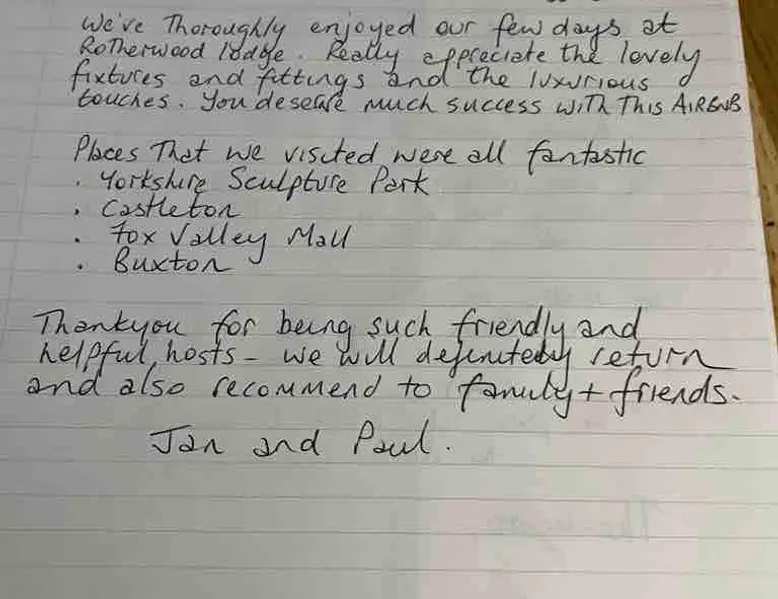 We've Thoroughly enjoyed our few days at
Rotherwood lodge. Really appreciate the lovely
fixtures and fittings and the luxurious
touches. You deserve much success with This AIRBNB
Places That we visited were all fantastic
. Yorkshire Sculpture Park
. Castleton
. Fox Valley Mall
. Buxton
Thankyou for being such friendly and
helpful hosts - we will definitely return
and also recommend to family + friends.
Jan and Paul.